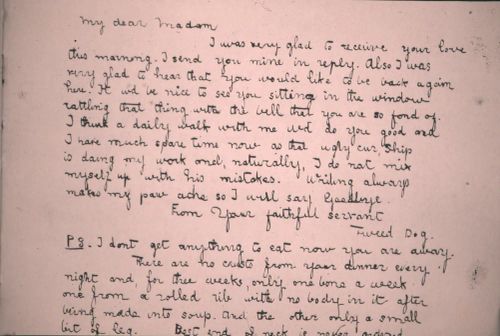 My dear Madam
I was very glad to receive your love
this morning. I send you mine in reply. Also I was
very glad to hear that you would like to be back again
here. It wd be nice to see you sitting in the window
rattling that thing with the bell that you are so fond of.
I think a daily walk with me wd do you good and
I have much spare time now as that ugly cur, Ship
is doing my work and, naturally, I do not mix
myself up with his mistakes. Writing always
makes my paw ache so I will say Goodbye.
From Your faithful servant
Tweed Dog.
P.S. I dont get anything to eat now you are away.
There are no crusts from your dinner every
night and, for three weeks, only one bone a week
one from a rolled rib with no body in it after
being made into soup. And the other only a small
bit of leg. Best end of neck is never